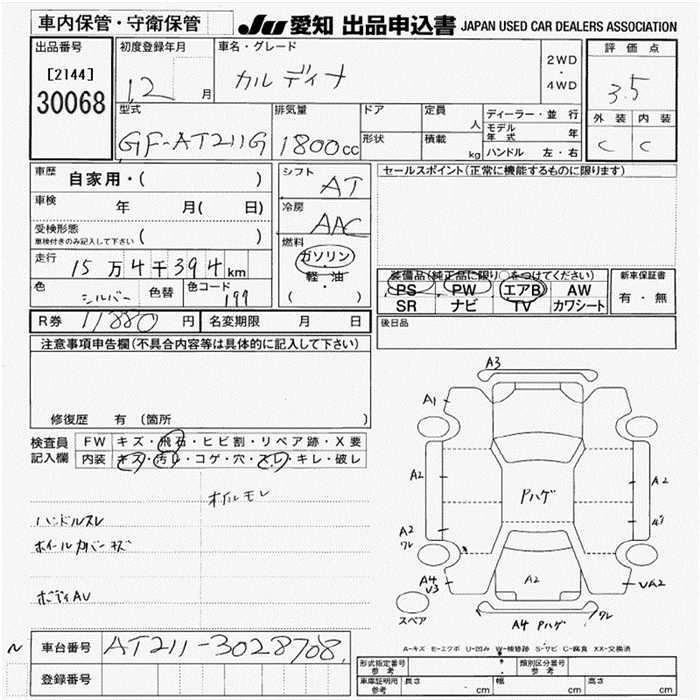 車内保管・守衛保管
JU 愛知 出品申込書 JAPAN USED CAR DEALERS ASSOCIATION
出品番号
[2144]
30068
初度登録年月
12 月
車名・グレード
カルディナ
2WD
・
4WD
評価点
3.5
外装 内装
C C
型式
GF-AT211G
排気量
1800cc
ドア
形状
定員
人
積載
kg
ディーラー・並行
モデル年式 年
ハンドル 左・右
車歴
自家用・( )
車検
年 月( 日)
受検形態
車検付きのみ記入して下さい ( )
走行
15万4千394km
色
シルバー
色替
色コード
199
シフト
AT
冷房
AAC
燃料
ガソリン
・
軽・油
( )
セールスポイント(正常に機能するものに限ります)
装備品(純正品に限り○をつけてください)
PS PW エアB AW
SR ナビ TV カワシート
新車保証書
有・無
後日品
R券 11880 円
名変期限 月 日
注意事項申告欄(不具合内容等は具体的に記入して下さい)
修復歴 有 (箇所 )
検査員
記入欄
FW キズ・飛石・ヒビ割・リペア跡・X要
内装 キズ・汚レ・コゲ・穴・スレ・キレ・破レ
オイルモレ
ハンドルスレ
ホイールカバーキズ
ボディAU
A3
A1
A2
A2
Pハゲ
A2
ワレ
A4
U3
A2
UA2
スペア
A4 Pハゲ
ワレ
A-キズ E-エクボ U-凹み W-補修跡 S-サビ C-腐食 XX-交換済
車台番号
AT211-3028708
登録番号
形式指定番号
参考
類別区分番号
参考
車庫証明用
参考
長さ cm
幅 cm
高さ cm